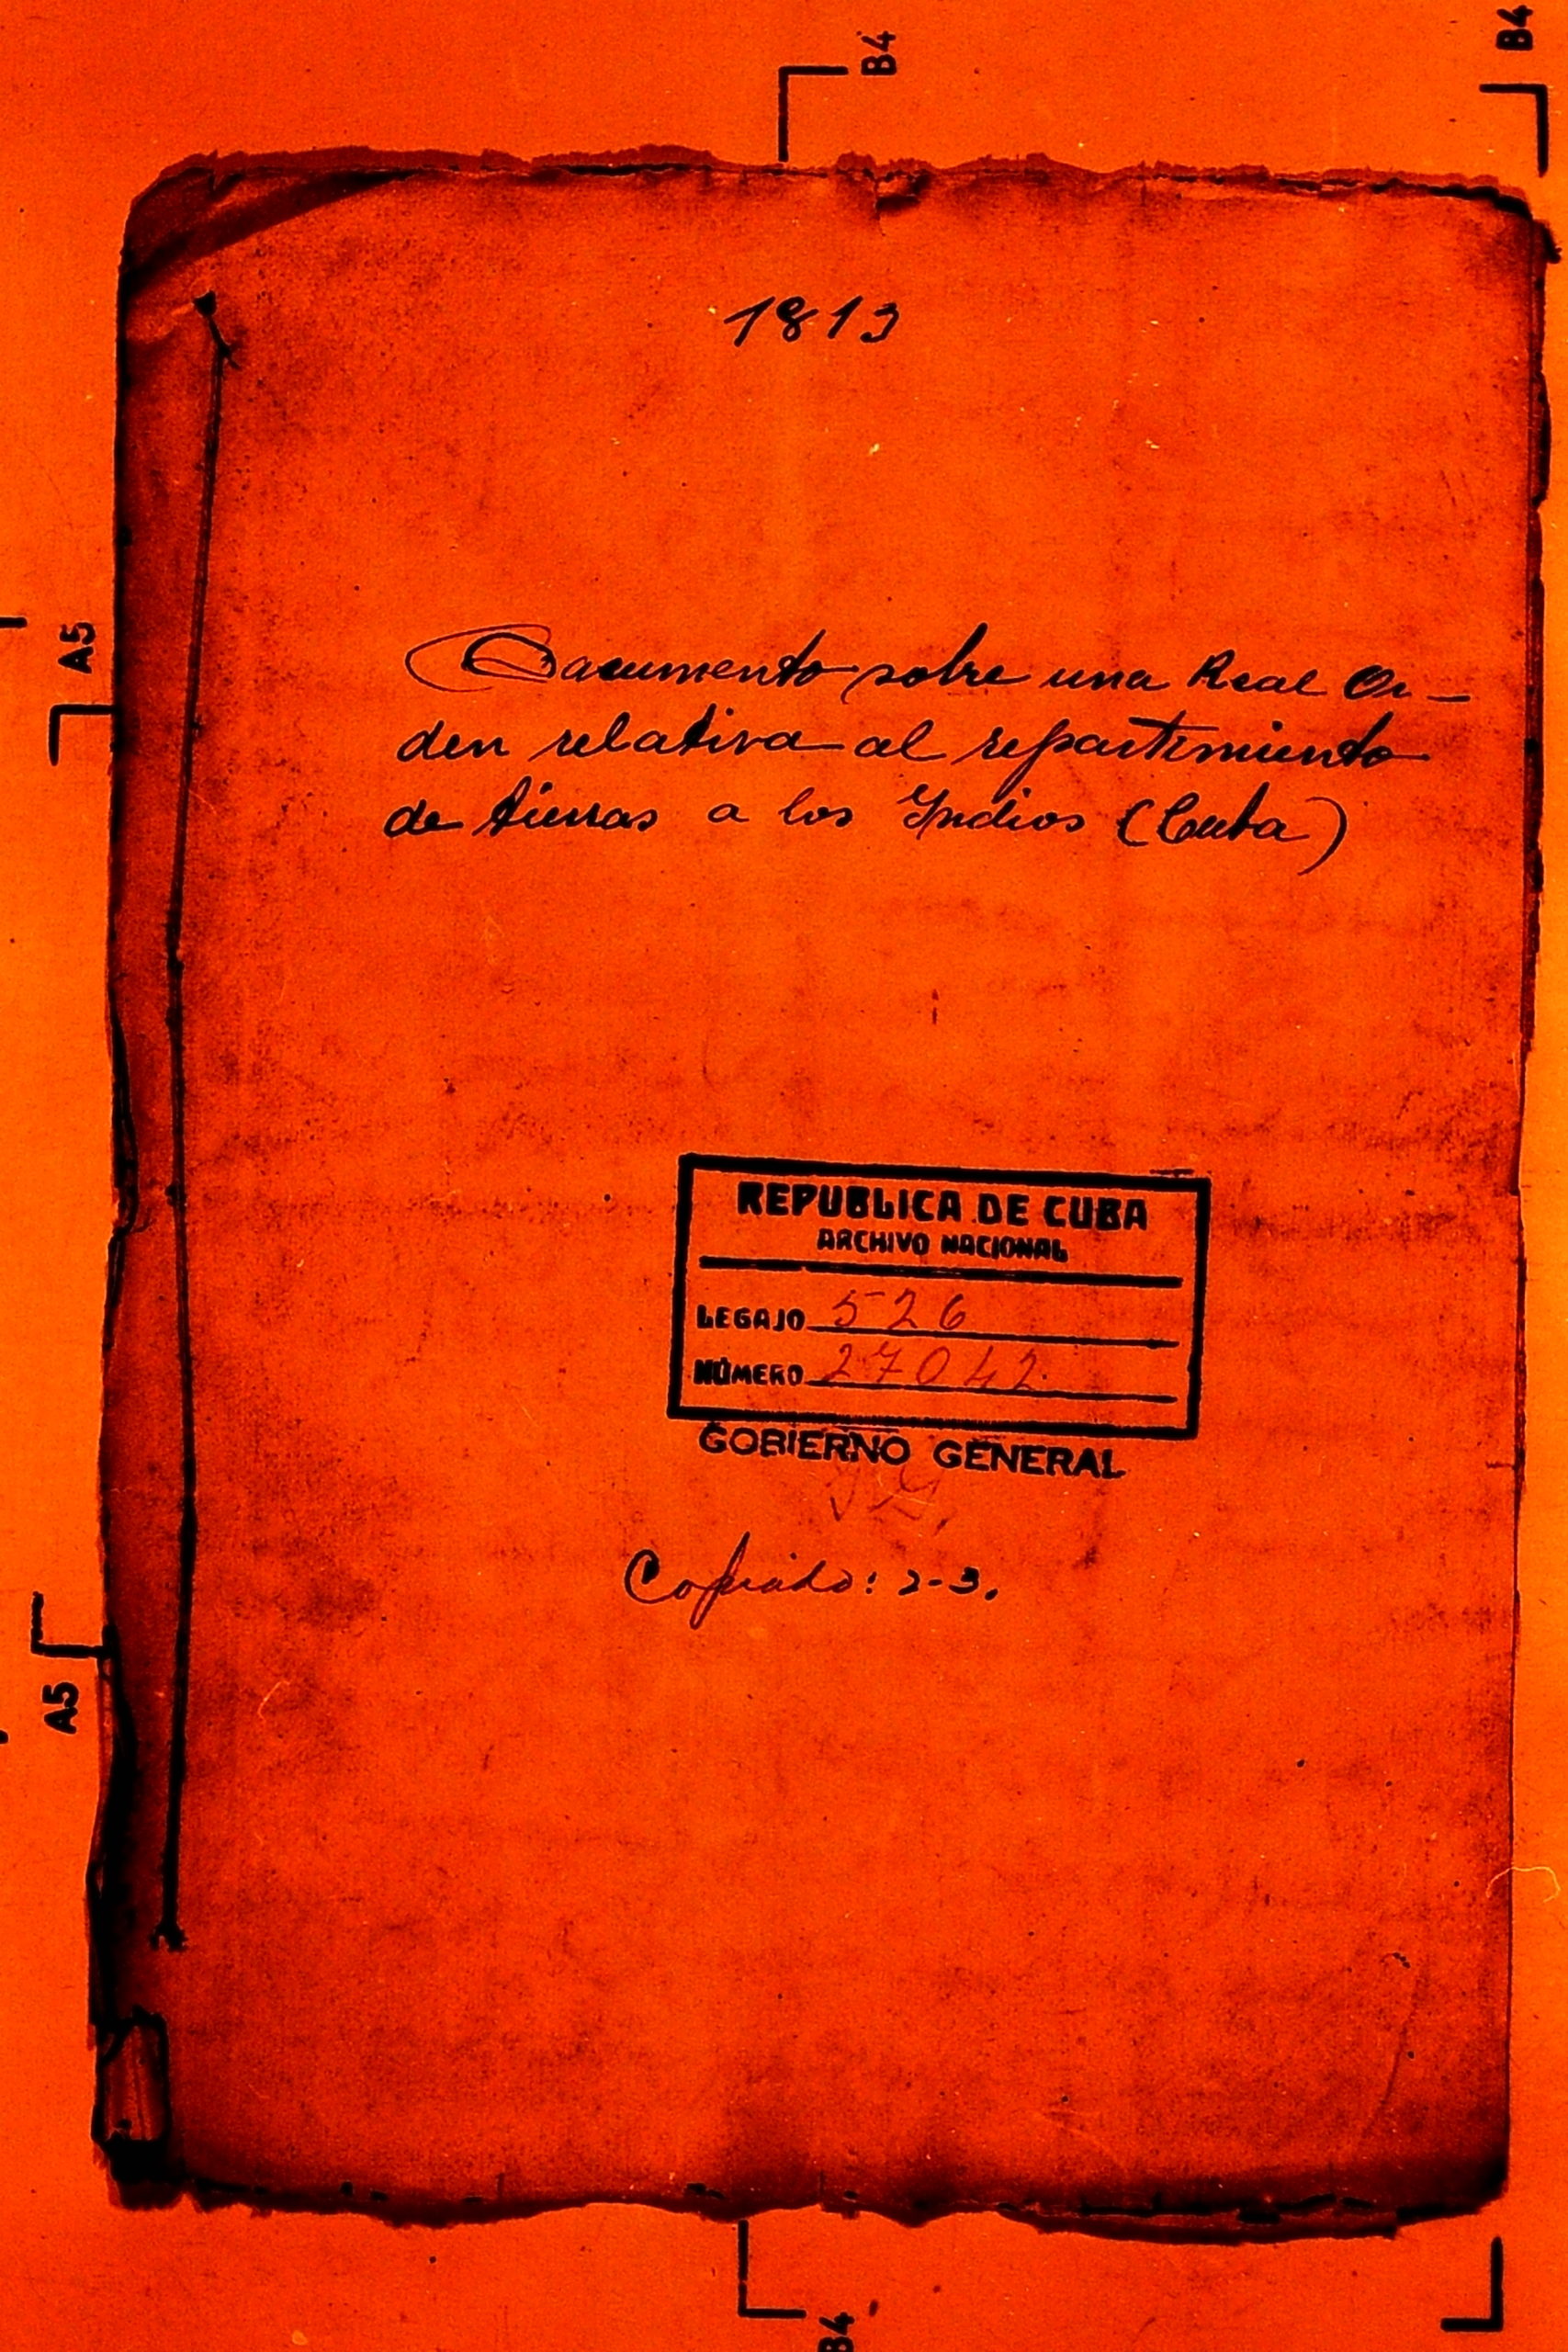 B4
B4
1813
A5
Documento sobre una Real Or-
den relativa al repartimiento
de tierras a los Yndios (Cuba)
REPUBLICA DE CUBA
ARCHIVO NACIONAL
LEGAJO 526
NÚMERO 27042
GOBIERNO GENERAL
Copiado: 2-3.
A5
B4